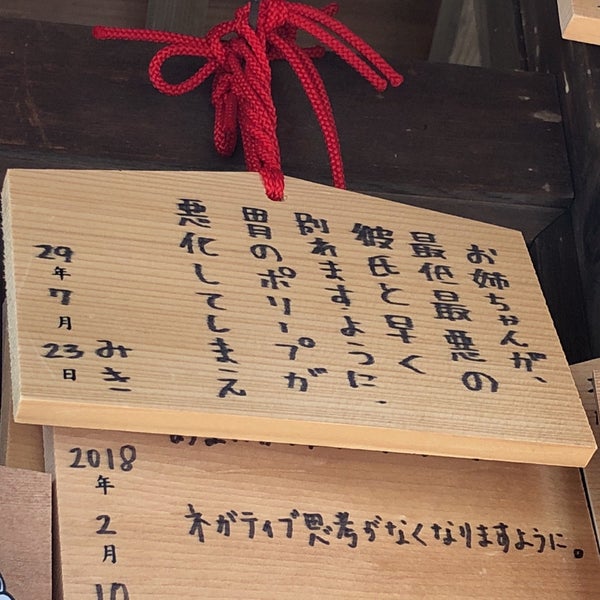 お姉ちゃんが、
最低最悪の
彼氏と早く
別れますように、
胃のポリープが
悪化してしまえ
みき
29年7月23日
ネガティブ思考がなくなりますように。
2018年2月10